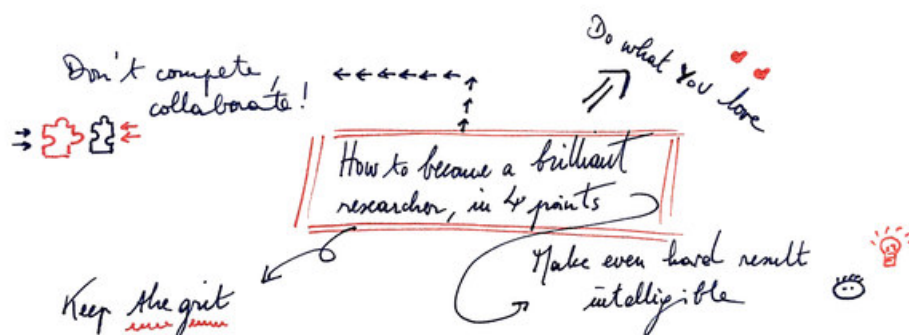 Don't compete,
collaborate!
Do what You love
How to became a brilliant
researcher, in 4 points
Keep the grit
Make even hard result
intelligible